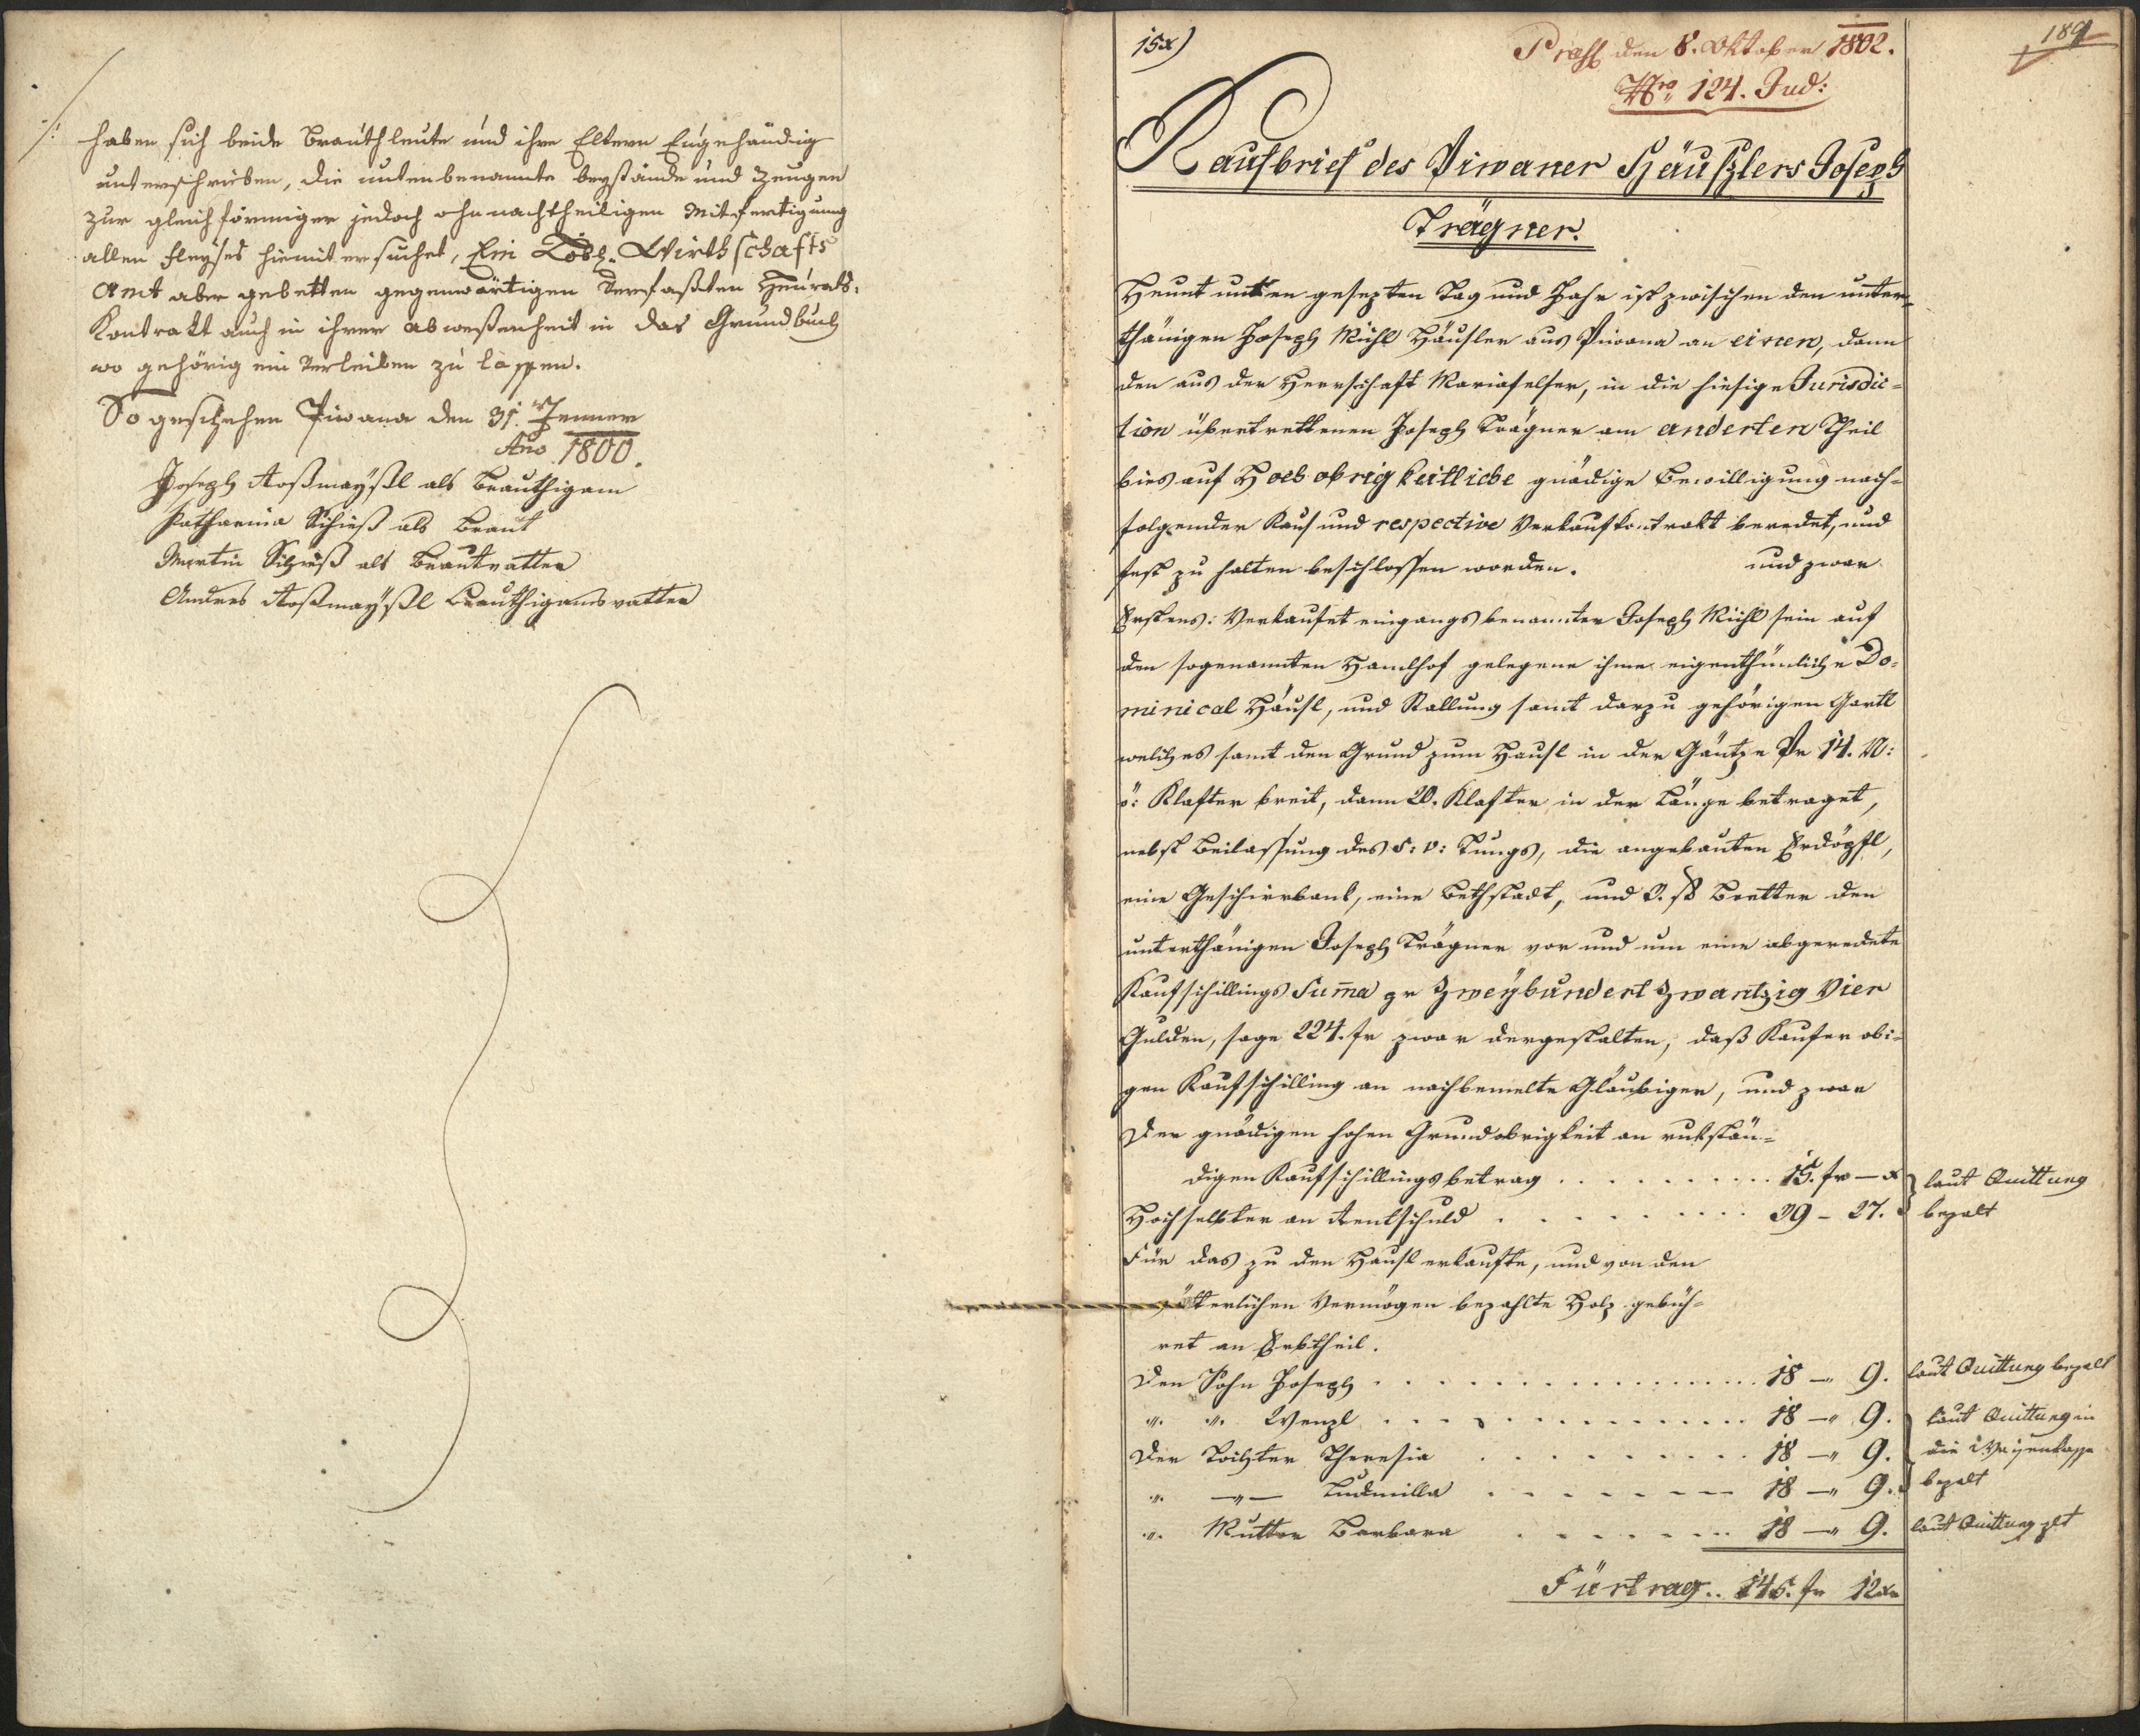 haben sich beide Brauthleute und ihre Eltern Eigehändig
unterschrieben, die untenbenannte beystände und Zeugen
zur gleichförmiger jedoch ohnnachtheiligen Mitfertigung
allen Fleyses hiemit ersuchet, Ein Löbl. Wirthschafts
Amt aber gebetten gegenwärtigen Verfaßten Heuraths-
Kontrakt auch in ihrer abweßenheit in das Grundbuch
wo gehörig ein Verleiben zu lassen.
So geschehen Piwana den 31. Jenner
Ano 1800.
Joseph Roßmayßl als Brauthigam
Katharina Schieß als Braut
Martin Schieß als Brautvatter
Andres Roßmayßl Brauthigamsvatter
15x)
Prass den 8. Oktober 1802.
Nro 124. Jud:
189
Kaufbrief des Piwaner Häuslers Joseph
Trägner.
Heunt unten gesezten Tag und Jahr ist zwischen den unter-
thänigen Joseph Mühl Häusler aus Piwana an einen, dann
den aus der Herrschaft Mariafelser, in die hiesige Jurisdic-
tion übertrettenen Joseph Trägner am anderten Theil
bies auf Hochobrigkeitliche gnädige Bewilligung nach-
folgender Kauf und respective Verkaufkontrakt beredet, und
fest zu halten beschlossen worden. und zwar
Erstens: Verkaufet eingangs benannter Joseph Mühl sein auf
den sogenannten Hamlhof gelegene ihme eigenthümliche Do-
minical Häusl, und Stallung samt darzu gehörigen Gartl
welches samt den Grund zum Hausl in der Gäntze Pr 14. N:
ö: Klafter breit, dann 20. Klafter in der Länge betraget,
nebst Beilassung des s: v: Tungs, die angebauten Erdöpfl,
eine Geschirrbank, eine Bethstadt, und Bretter den
unterthänigen Joseph Trägner vor und um eine abgeredete
Kaufschillings Summa pr Zweyhundert Zwantzig Vier
Gulden, sage 224. fr zwar dergestalten, daß Kaufer obi-
gen Kaufschilling an nachbemelte Gläubiger, und zwar
Der gnädigen hohen Grundobrigkeit an rukstän-
digen Kaufschillingsbetrag . . . . . . . . . 15. fr — x
laut Quittung
Hochselbter an Rentschuld . . . . . . . . . 39 - 27.
bezalt
Für das zu den Hausl erkaufte, und von den
vätterlichen Vermögen bezahlte Holz gebüh-
ret an Erbtheil.
Den Sohn Joseph . . . . . . . . . . . . 18 — 9.
laut Quittung bezalt
" " Wenzl . . . . . . . . . . . . 18 — 9.
laut Quittung in
Der Tochter Theresia . . . . . . . . . 18 — 9.
die Waisenkasse
" —"— Ludmilla . . . . . . . . . 18 — 9.
bezalt
" Mutter Barbara . . . . . . . . . 18 — 9.
laut Quittung zlt
Fürtrag . . 145. fr 12 xr